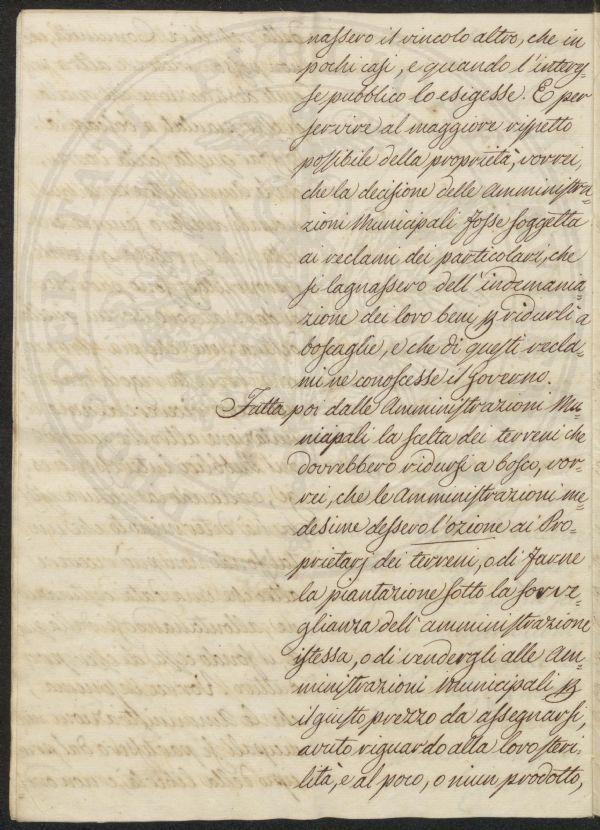 nassero il vincolo altro, che in
pochi casi, e quando l'interes=
se pubblico lo esigesse. E per
servire al maggiore rispetto
possibile della proprietà, vorrei,
che la decisione delle Amministra=
zioni Municipali fosse soggetta
ai reclami dei particolari, che
si lagnassero dell'indemania=
zione dei loro beni p ridurli a
boscaglie, e che di questi recla=
mi ne conoscesse il Governo.
Fatta poi dalle Amministrazioni Mu=
nicipali la scelta dei terreni che
dovrebbero ridursi a bosco, vor=
rei, che le Amministrazioni me=
desime dessero l'ozione ai Pro=
prietarj dei terreni, o di farne
la piantazione sotto la sorve=
glianza dell'amministrazione
istessa, o di vendergli alle Am=
ministrazioni Municipali p
il giusto prezzo da assegnarsi,
avuto riguardo alla loro steri=
lità, e al poco, o niun prodotto,